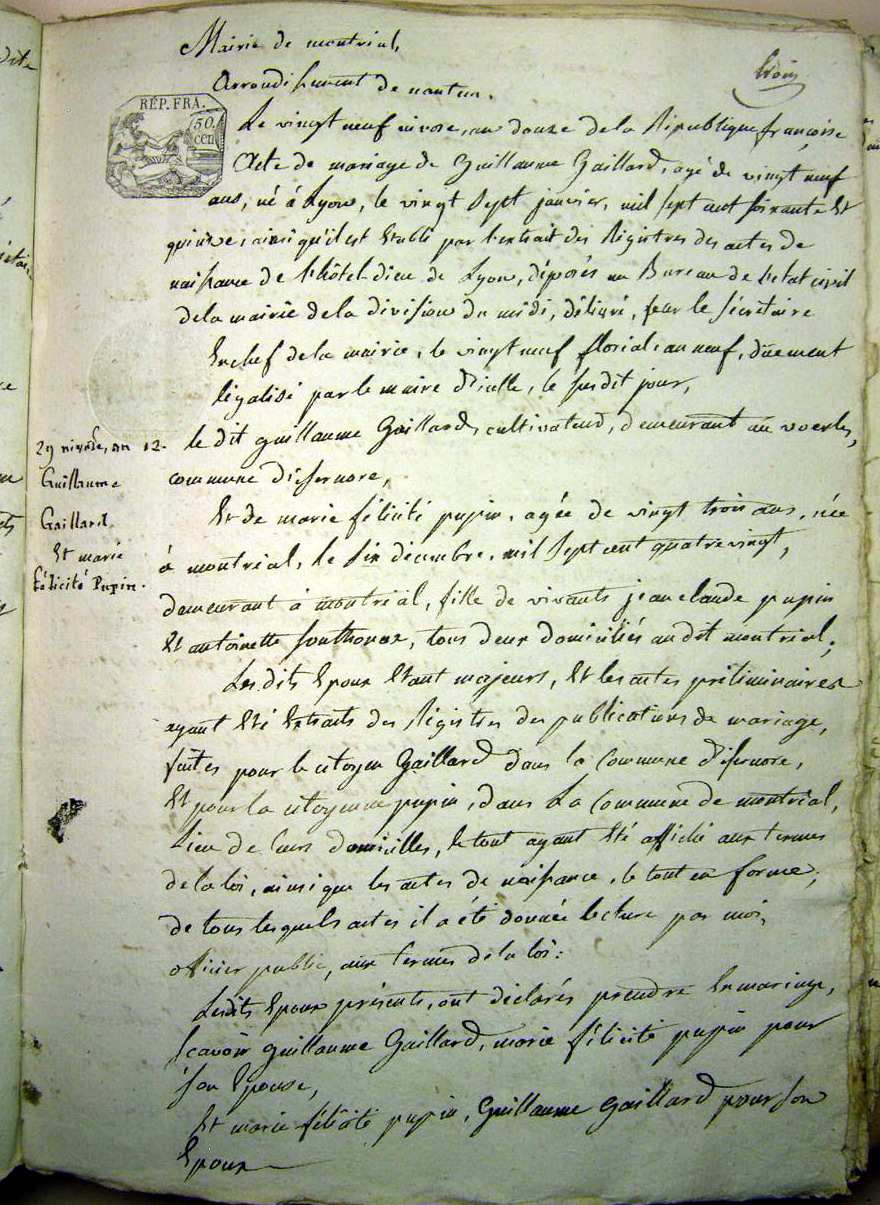 Mairie de montrial,
trois
Arrondissement de nantua.
RÉP. FRA.
50.
cen
Le vingt neuf nivose, an douze de la République françoise
Acte de mariage de Guillaume Gaillard, agé de vingt neuf
ans, né à Lyon, le vingt sept janvier, mil sept cent soixante et
quinze, ainsi qu'il est Etabli par l'extrait des Registres des actes de
naissance de l'hôtel dieu de Lyon, déposés au Bureau de l'etat civil
de la mairie de la division du midi, délivré, par le sécretaire
En chef de la mairie, le vingt neuf floréal, an neuf, dûement
légalisé par le maire d'icelle, le susdit jour,
le dit guillaume Gaillard, cultivateur, demeurant au
commune d'isernore,
29 nivôse, an 12.
Guillaume
Gaillard
Et marie
félicité Pupin.
Et de marie félicité pupin, agée de vingt trois ans, née
à montréal, le six décembre, mil sept cent quatre vingt,
demeurant à montréal, fille de vivants jean claude pupin
Et antoinette sonthonax, tous deux domiciliés au dit montréal;
Les dits Epoux Etant majeurs, Et les actes préliminaires
ayant Eté Extraits des Régistres des publications de mariage,
faites pour le citoyen Gaillard dans la Commune d'isernore,
Et pour la citoyenne pupin, dans La Commune de montréal,
Lieu de leurs domicilles, le tout ayant Eté affiché aux termes
de la loi, ainsi que les actes de naissance, le tout en forme;
de tous lesquels actes il a été donnée lecture par moi,
officier public, aux termes de la loi:
Lesdits Epoux présents, ont déclarés prendre En mariage,
sçavoir guillaume Gaillard, marie félicité pupin pour
son Epouse,
Et marie félicité pupin, Guillaume Gaillard pour son
Epoux